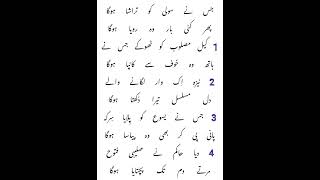 جس نے سولی کو تراشا ہوگا
پھر کئی بار وہ رویا ہوگا
1 کیل مصلوب کو ٹھوکے جس نے
ہاتھ وہ خوف سے کانپا ہوگا
2 نیزہ اِک وار لگانے والے
دل مسلسل تیرا دکھتا ہوگا
3 جس نے یسوع کو پلایا سرکہ
پانی پی کر بھی وہ پیاسا ہوگا
4 دیا حاکم نے صلیبی فتوح
مرتے دم تک پچھتایا ہوگا